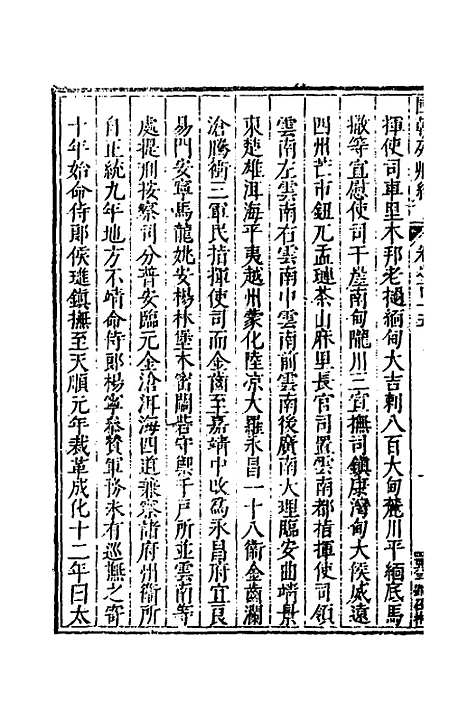 揮使司車里木邦老撾緬甸大古剌八百大甸麓川平緬底馬
撒等宣慰使司干崖南甸隴川三宣撫司鎮康灣甸大侯威遠
四州芒市鈕兀孟璉茶山麻里長官司置雲南都指揮使司領
雲南左雲南右雲南中雲南前雲南後廣南大理臨安曲靖景
東楚雄洱海平夷越州蒙化陸凉大羅永昌一十八衛金齒瀾
滄騰衝三軍民指揮使司而金齒至嘉靖中改為永昌府宜良
易門安寧馬龍姚安楊林堡木密關 守禦千戶所並雲南等
處提刑按察司分普安臨元金滄洱海四道 察諸府州衛所
自正統九年地方不靖命侍郎楊寧叅贊軍務未有巡撫之寄
十年始命侍郎侯璡鎮撫至天順元年裁革成化十二年曰太